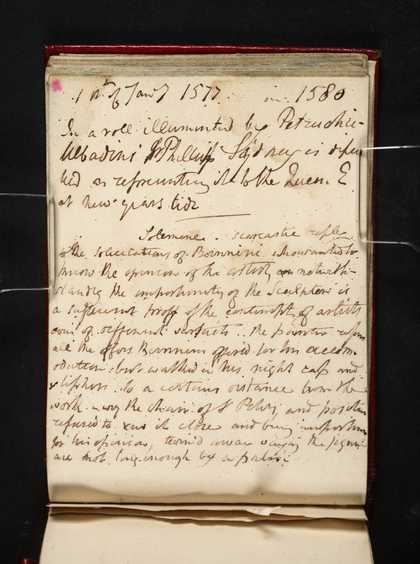 1st of Jany 1577 in 1580
In a roll illuminated by Petruchio
Ubadini Sr Phillip Sydney is
as representing it to the Queen E.
at new years tide
Solemene. sarcastic
to the solicitations of Bernini who wanted to
know the opinion of the artist
the importunity of the Sculptor is
a sufficient proof of the contempt of artists
of different . The painter
all the offers Bernini offered for his accom-
odation but walked in his night cap and
slippers to a certain distance from the
work the chair of St Peter, and
refused to it close and being
for his opinion, turn'd away saying the figures
are not large enough by a palm.